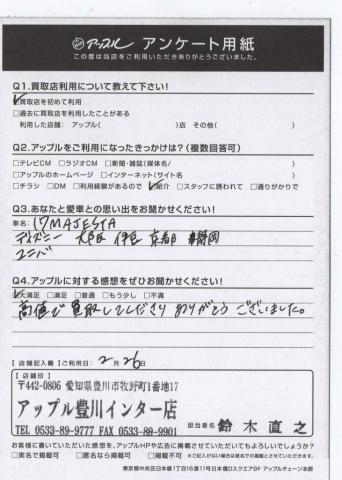 アップル アンケート用紙
この度は当店をご利用いただきありがとうございました。
Q1.買取店利用について教えて下さい!
☑買取店を初めて利用
□過去に買取店を利用したことがある
利用した店舗: アップル( )店 その他( )
Q2.アップルをご利用になったきっかけは?(複数回答可)
□テレビCM □ラジオCM □新聞・雑誌(媒体名/ )
□アップルのホームページ □インターネット(サイト名 )
□チラシ □DM □利用経験があるので ☑紹介 □スタッフに誘われて □通りがかりで
Q3.あなたと愛車との思い出をお聞かせください!
車名: 17MAJESTA
ディズニー 大阪 伊豆 京都 静岡
ユニバ
Q4.アップルに対する感想をぜひお聞かせください!
☑大満足 □満足 □普通 □もう少し □不満
高値で買取してくださり ありがとう ございました。
【店舗記入欄】ご利用日: 2月26日
【店舗印】
〒442-0806 愛知県豊川市牧野町1番地17
アップル豊川インター店
TEL 0533-89-9777 FAX 0533-89-9901
担当者名 鈴木直之
お客様に書いていただいた感想を、アップルHPや広告に掲載させていただいてもよろしいでしょうか?
□実名で掲載可 □匿名なら掲載可 □掲載不可 ※ご記入がない場合は匿名での掲載とさせていただきます。
東京都中央区日本橋1丁目16番11号日本橋Dスクエア9F アップルチェーン本部